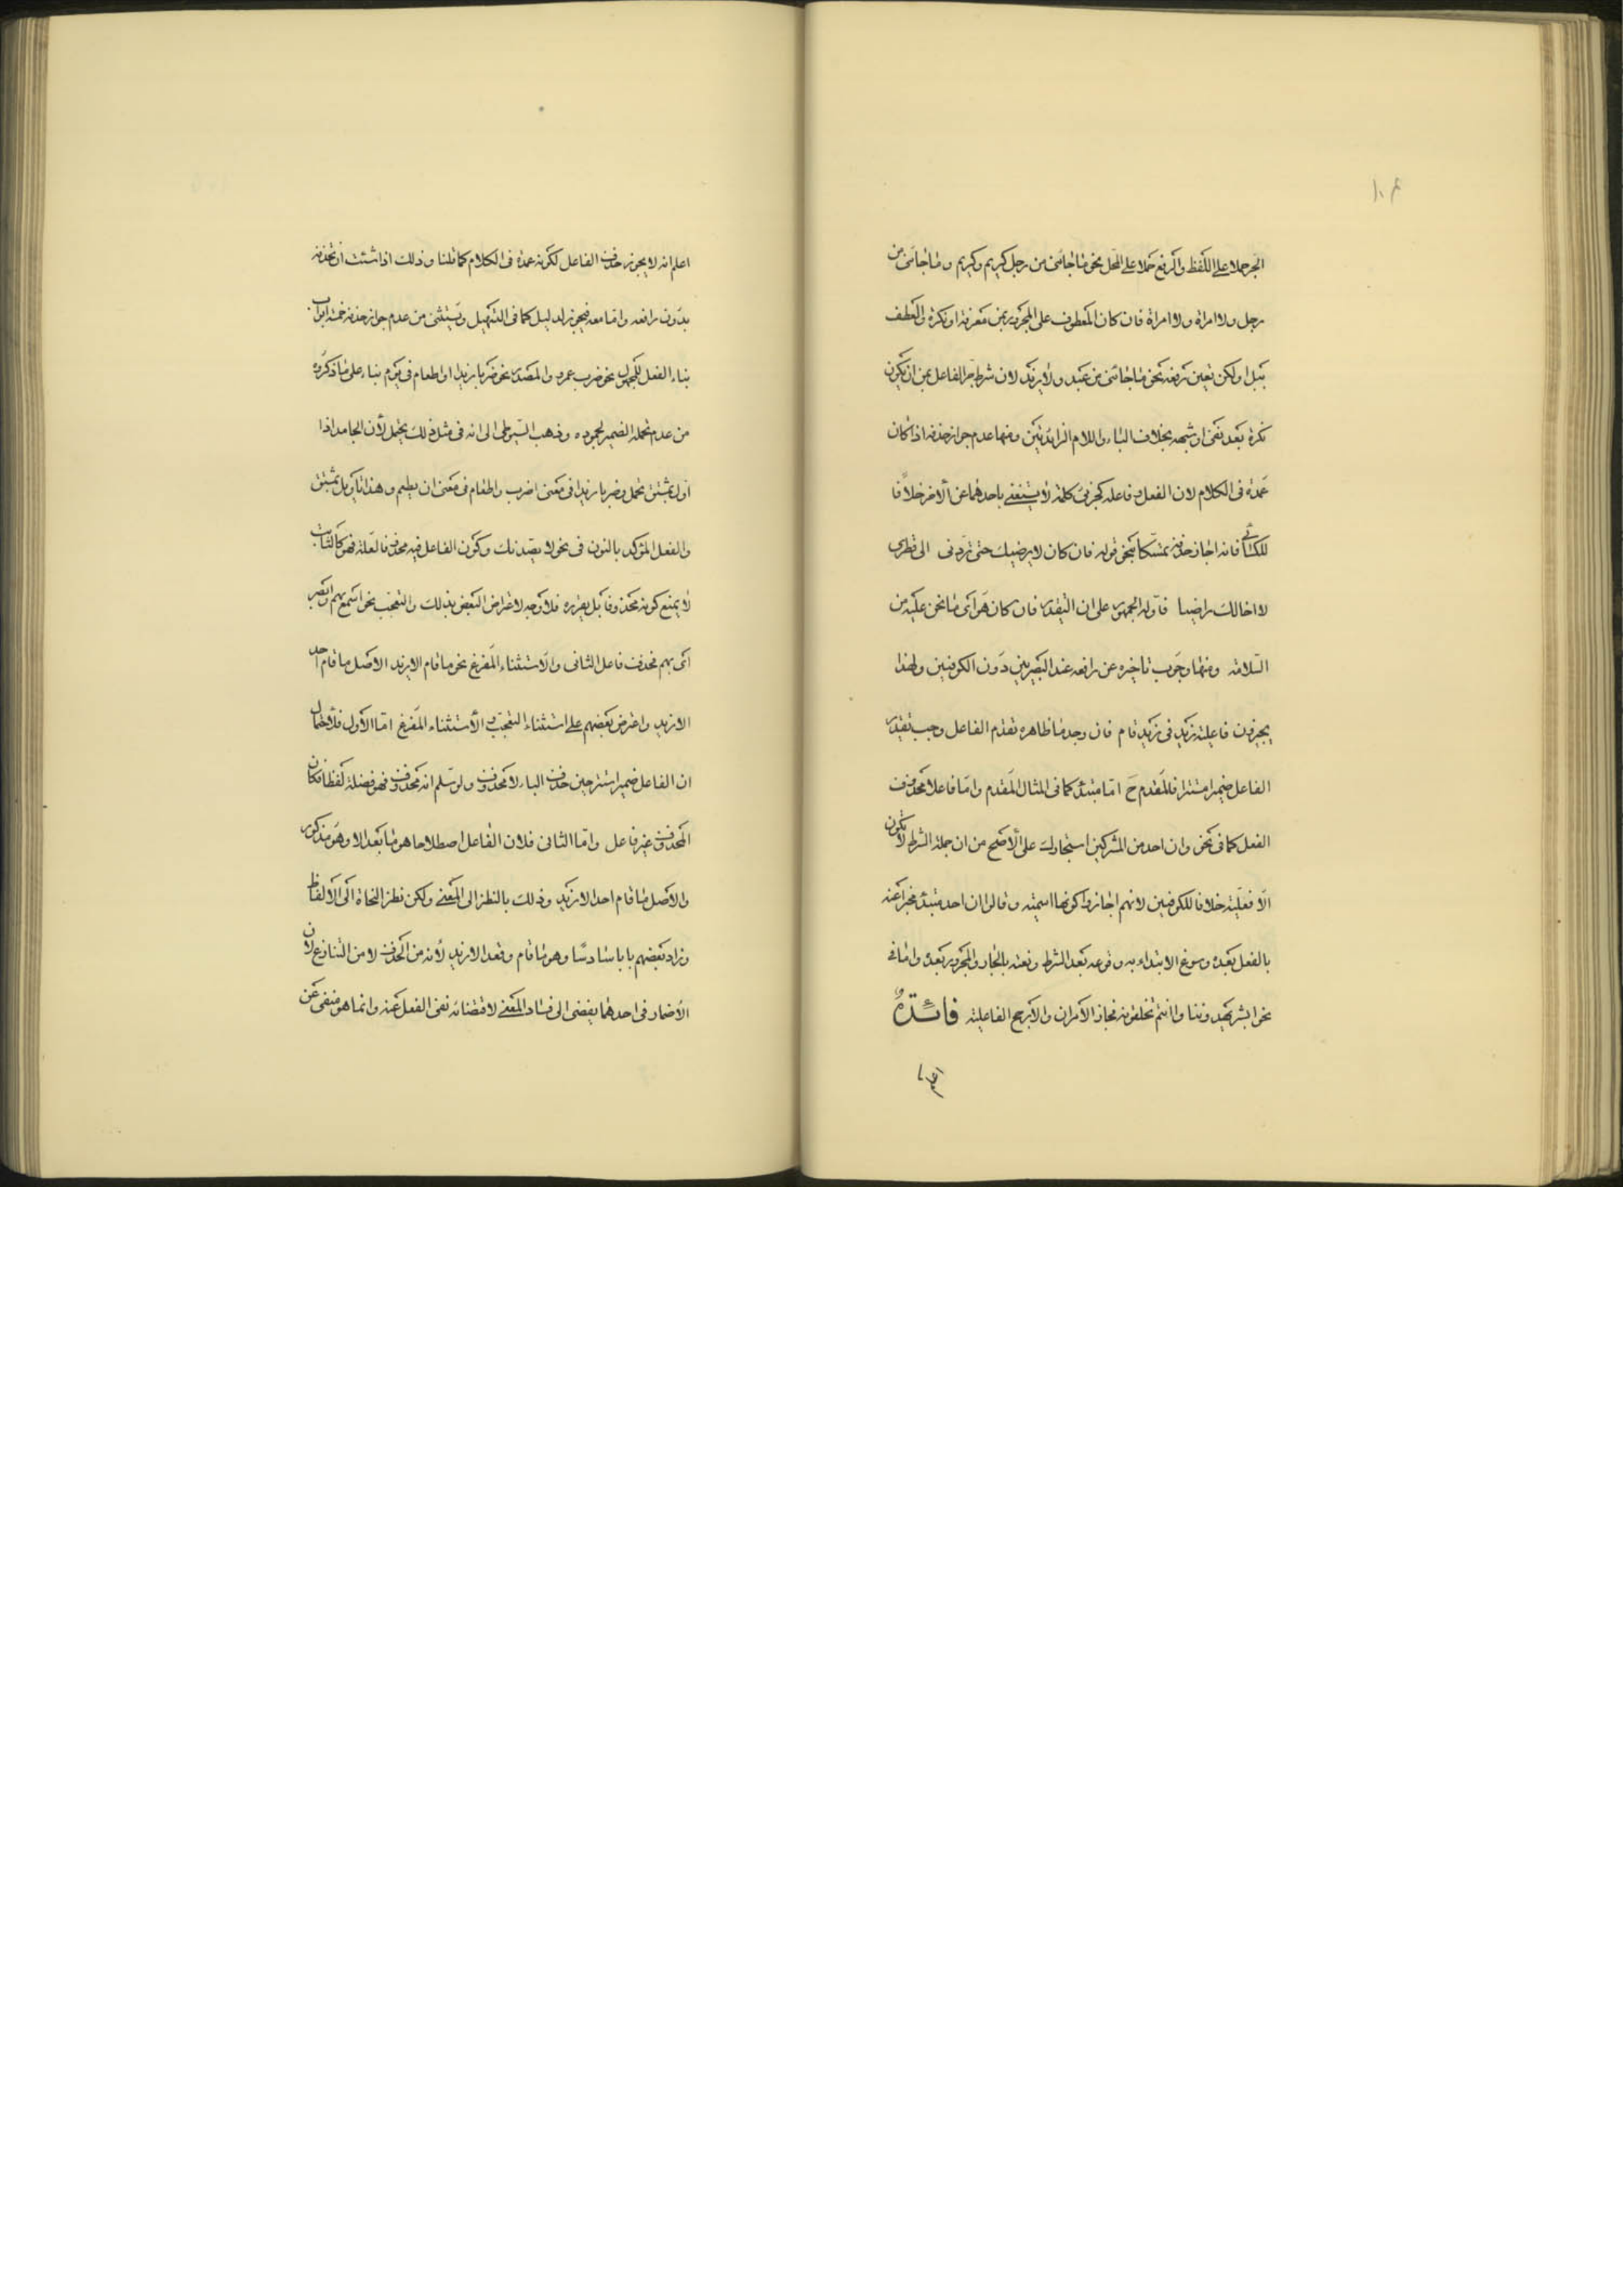 ١٠٤
الجر حملا على اللفظ والرفع حملا على المحل نحو ما جاءنى من رجل كريم وكريم وما جاءنى من
رجل ولا امراة ولا امراة فان كان المعطوف على المجرور بمن معرفة او نكرة والعطف
ببل او لكن تعين رفعه نحو ما جاءنى من عبد ولا زيد لان شرط جر الفاعل بمن ان يكون
نكرة بعد نفى او شبهه بخلاف الباء واللام الزايدتين ومنها عدم جواز حذفه اذا كان
عمدة فى الكلام لان الفعل وفاعله كجزئى كلمة لا يستغنى باحدهما عن الاخر خلافا
للكسائى فانه اجاز حذفه متمسكا بنحو قوله فان كان لا يرضيك حتى تردنى الى قطرى
لا اخالك راضيا فاوله الجمهور على ان التقدير فان كان هو اى ما نحن عليه من
السلامة ومنها وجوب تاخيره عن رافعه عند البصريين دون الكوفيين ولهذا
يجيزون فاعلية زيد فى زيد قام فان وجد ما ظاهره تقدم الفاعل وجب تقدير
الفاعل ضميرا مستترا فالمقدم ح اما مبتدأ كما فى المثال المقدم واما فاعلا محذوف
الفعل كما فى نحو وان احد من المشركين استجارك على الاصح من ان جملة الشرط لا تكون
الا فعلية خلافا للكوفيين لانهم اجازوا كونها اسمية وقالوا ان احد مبتدأ مخبرا عنه
بالفعل بعده وسوغ الابتداء به وقوعه بعد الشرط ونعته بالجار والمجرور بعده واما فى
نحو ابشر يهدوننا واانتم تخلقونه فجاز الامران والارجح الفاعلية فائدة
اعلم
اعلم انه لا يجوز حذف الفاعل لكونه عمدة فى الكلام كما قلنا وذلك اذا شئت ان تحذفه
بدون رافعه واما معه فيجوز لدليل كما فى التسهيل ويستثنى من عدم جواز حذفه خمسة ابواب
بناء الفعل للمجهول نحو ضرب عمرو والمصدر نحو ضربا زيدا او اطعام فى يوم بناء على ما ذكروه
من عدم تحمله الضمير لجموده وذهب السيوطى الى انه فى مثل ذلك يتحمل لأن الجامد اذا
اول بمشتق تحمل وضربا زيدا فى معنى اضرب واطعام فى معنى ان يطعم وهذا تاويل بمشتق
والفعل المؤكد بالنون فى نحو لا يصدنك وكون الفاعل فيه محذوفا لعلة فهو كالثابت
لا يمنع كونه محذوفا بل يقرره فلا وجه لاعتراض البعض بذلك والتعجب نحو اسمع بهم وابصر
اى بهم فحذف فاعل الثانى والاستثناء المفرغ نحو ما قام الا زيد الاصل ما قام احد
الا زيد واعترض بعضهم على استثناء التعجب والأستثناء المفرغ اما الاول فلاحتمال
ان الفاعل ضمير استتر حين حذف الباء لا محذوف ولو سلم انه محذوف فهو فضلة لفظا فكان
المحذوف غير فاعل واما الثانى فلان الفاعل اصطلاحا هو ما بعد الا وهو مذكور
والاصل ما قام احد الا زيد وذلك بالنظر الى المعنى ولكن نظر النحاة الى الالفاظ
وزاد بعضهم بابا سادسا وهو ما قام وقعد الا زيد لأنه من الحذف لا من التنازع لان
الأضمار فى احدهما يفضى الى فساد المعنى لاقتضائه نفى الفعل عنه وانما هو منفى عن